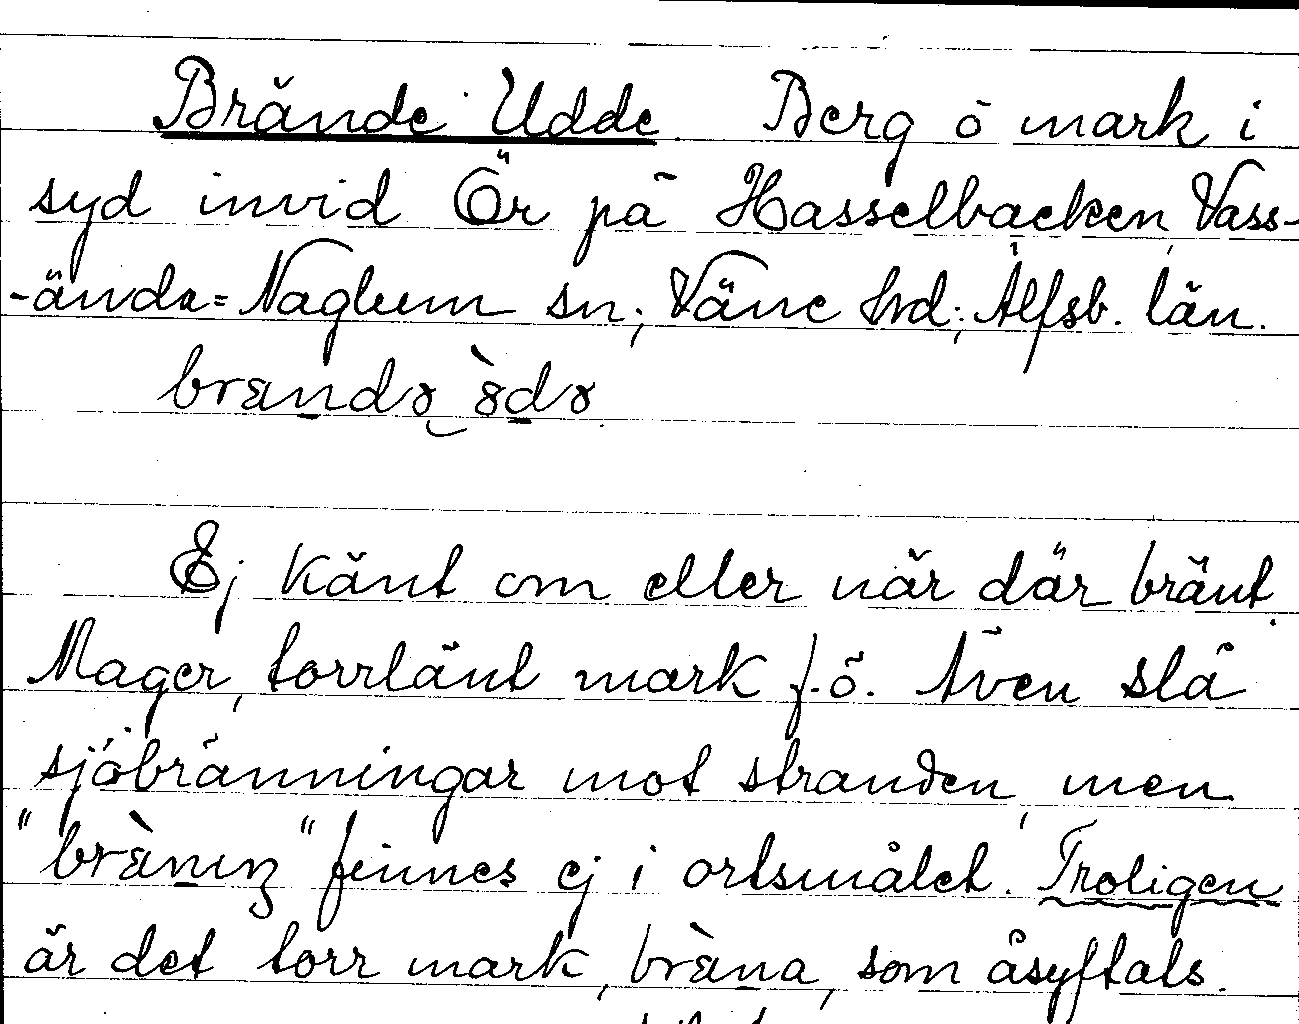 Brände Udde. Berg ō mark i
syd invid Ör på Hasselbacken, Väss-
-ända=Naglum sn; Väne hrd; Älfsb. län.
Ej känt om eller när där bränt.
Mager, torrlänt mark f.ö. Även slå
sjöbränningar mot stranden, men
" " finnes ej i ortsmålet. Troligen
är det torr mark, bräna, som åsyftats.